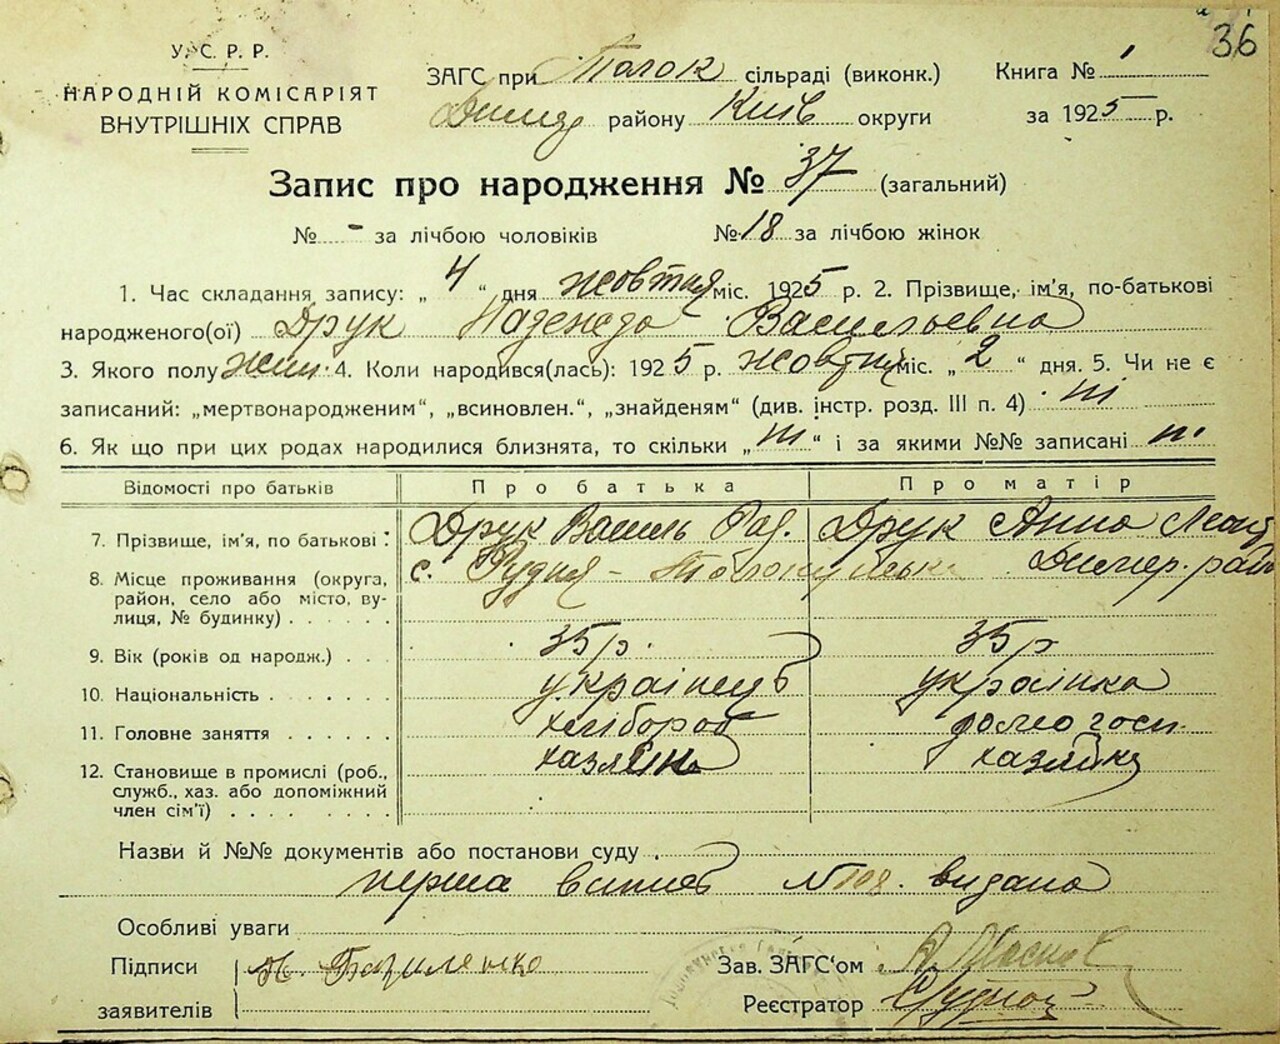 36
У. С. Р. Р.
НАРОДНІЙ КОМІСАРІЯТ
ВНУТРІШНІХ СПРАВ
ЗАГС при Толок сільраді (виконк.)
Книга № 1
району Київ округи
за 1925 р.
Запис про народження № 37 (загальний)
№ - за лічбою чоловіків № 18 за лічбою жінок
1. Час складання запису: „ 4 “ дня жовтня міс. 1925 р. 2. Прізвище, ім'я, по-батькові
народженого(ої) Друк Надежда Васильевна
3. Якого полу жин. 4. Коли народився(лась): 1925 р. жовтня міс. „ 2 “ дня. 5. Чи не є
записаний: „мертвонародженим“, „всиновлен.“, „знайденям“ (див. інстр. розд. III п. 4) ні
6. Як що при цих родах народилися близнята, то скільки „ ні “ і за якими №№ записані н.
Відомості про батьків Про батька Про матір
7. Прізвище, ім'я, по батькові: Друк Василь Друк Анна
8. Місце проживання (округа, район, село або місто, вулиця, № будинку) с. Рудня - Димер. рай
9. Вік (років од народж.) 35 р. 35 р
10. Національність українець українка
11. Головне заняття хлібороб домогосп.
12. Становище в промислі (роб., служб., хаз. або допоміжний член сім'ї) хазяїн хазяйка
Назви й №№ документів або постанови суду
перша випись № 108. видана
Особливі уваги
Підписи
заявителів
Зав. ЗАГС'ом
Реєстратор